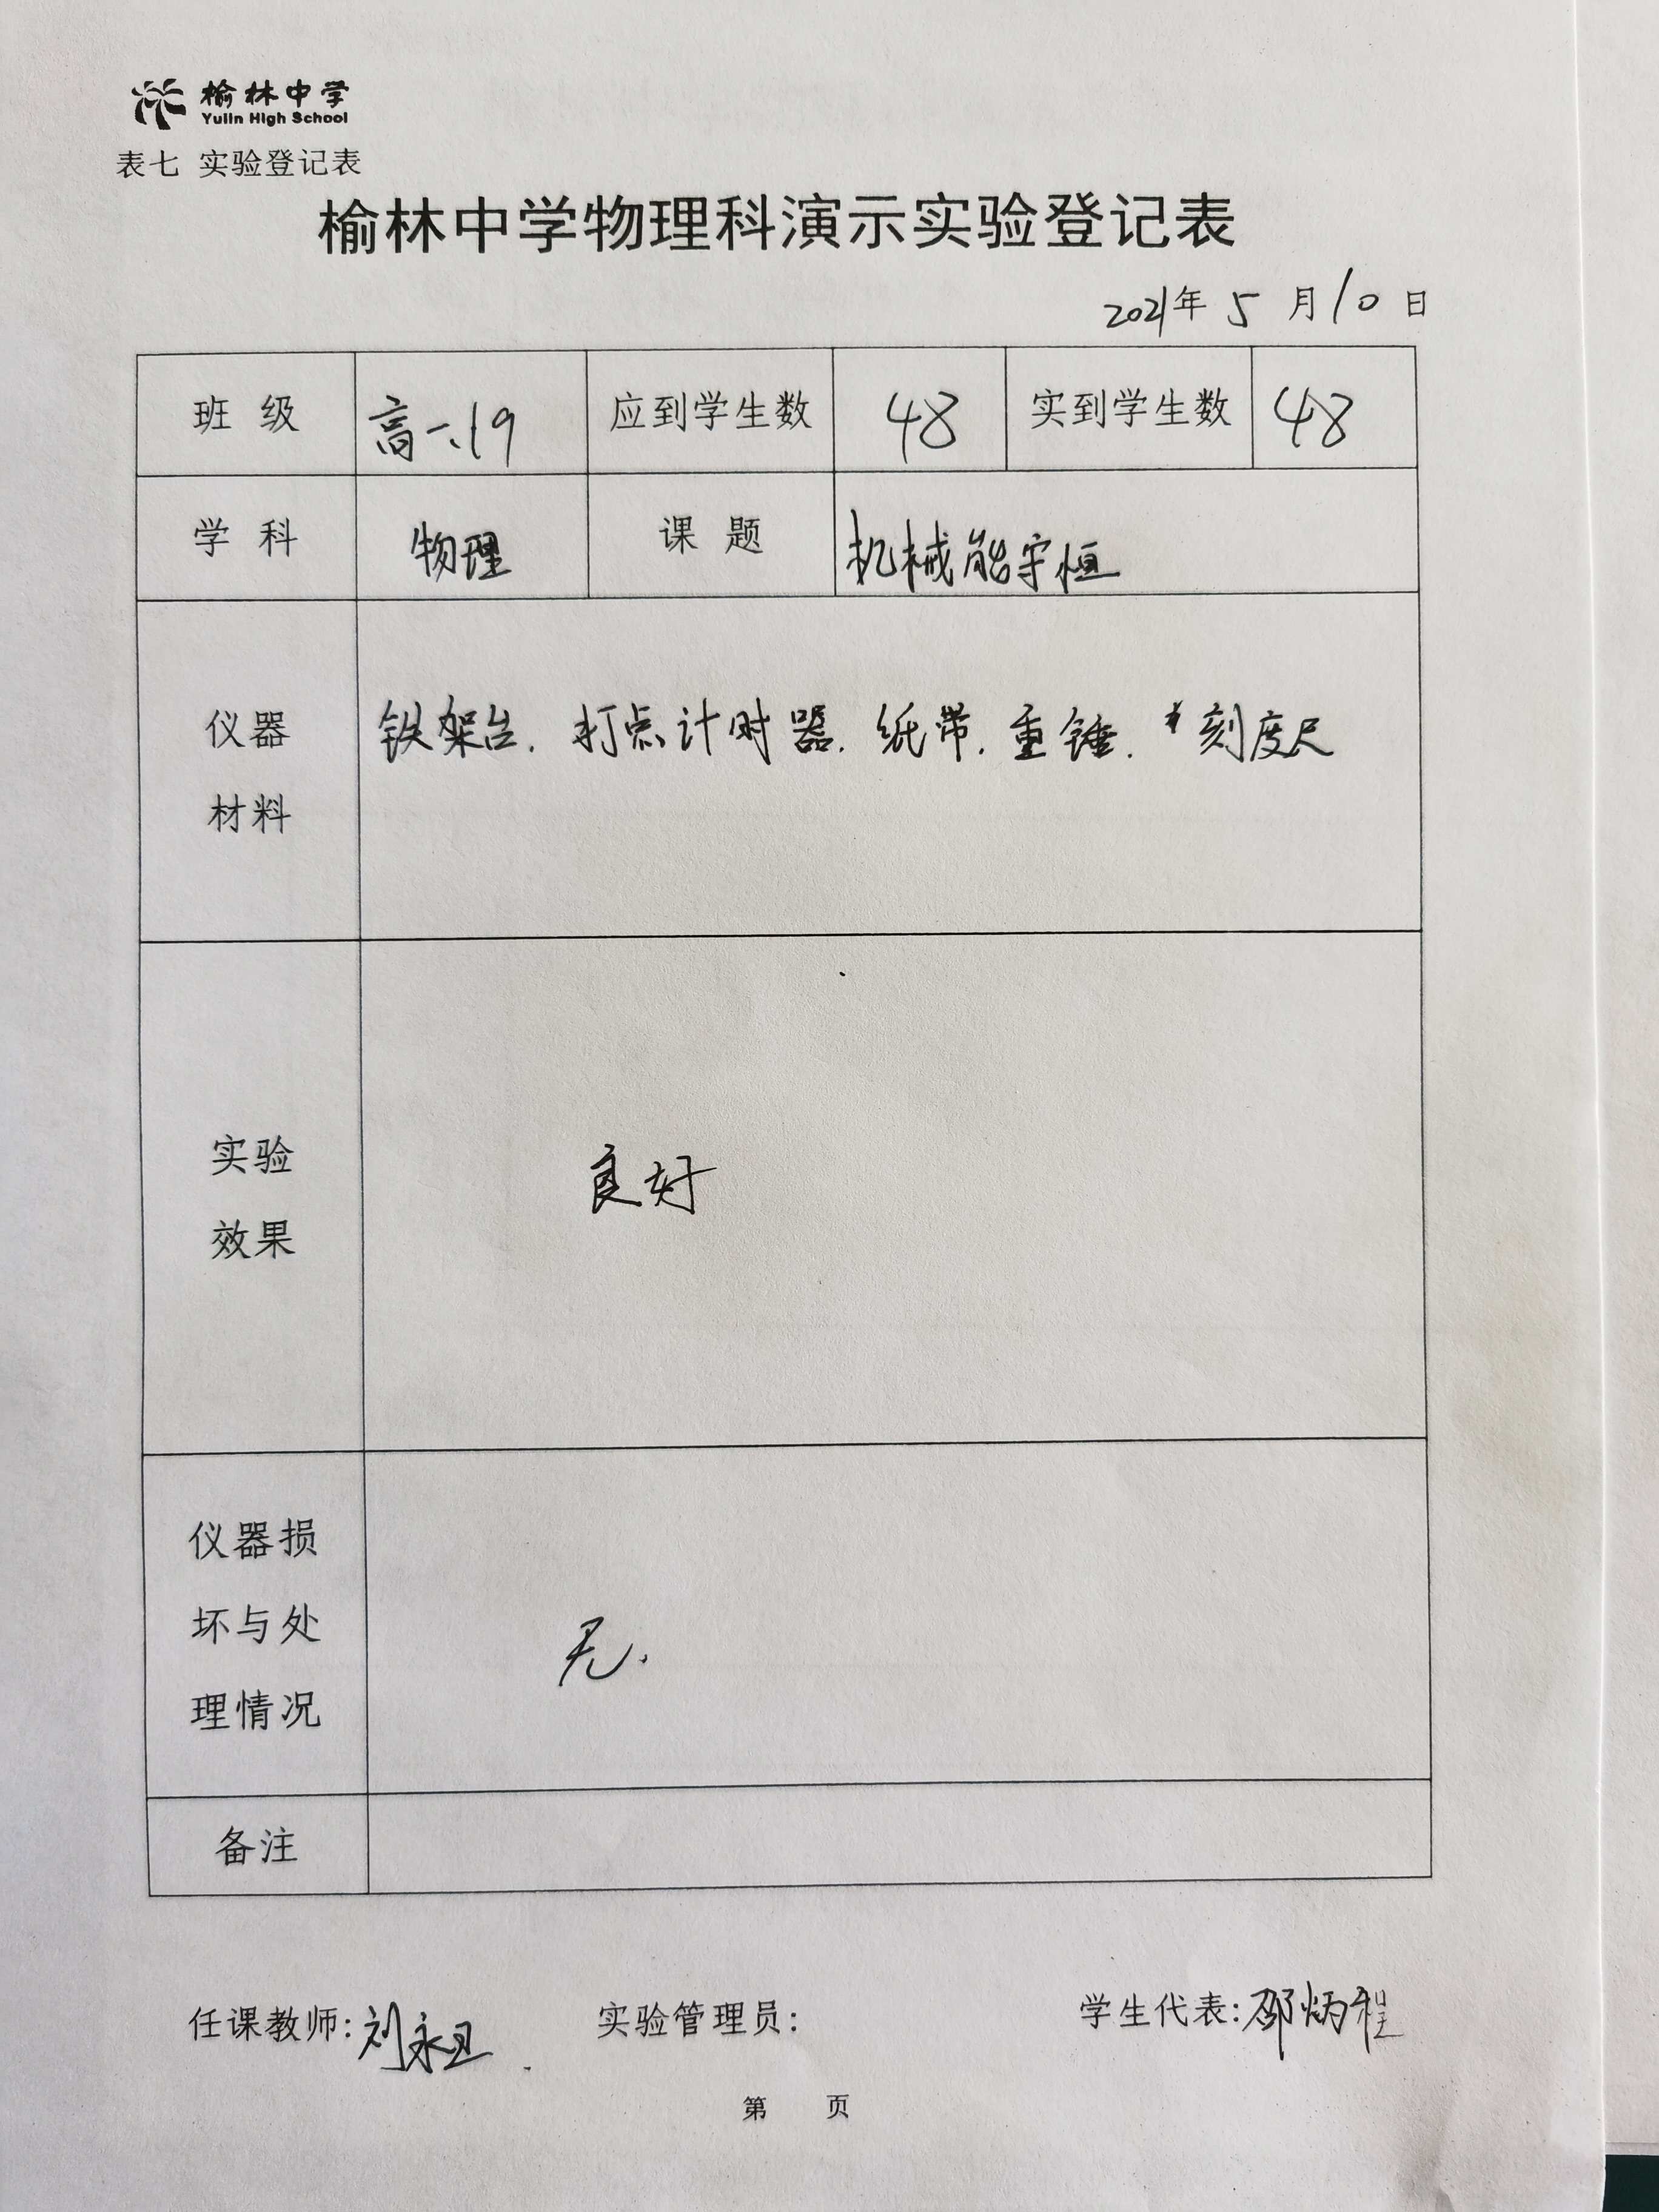 榆林中学
Yulin High School
表七 实验登记表
榆林中学物理科演示实验登记表
2021年 5 月 10 日
班 级 高一.19 应到学生数 48 实到学生数 48
学 科 物理 课 题 机械能守恒
仪器
材料
铁架台. 打点计时器. 纸带. 重锤. 刻度尺
实验
效果
良好
仪器损
坏与处
理情况
无.
备注
任课教师: 刘永卫 实验管理员: 学生代表: 邵炳程
第 页